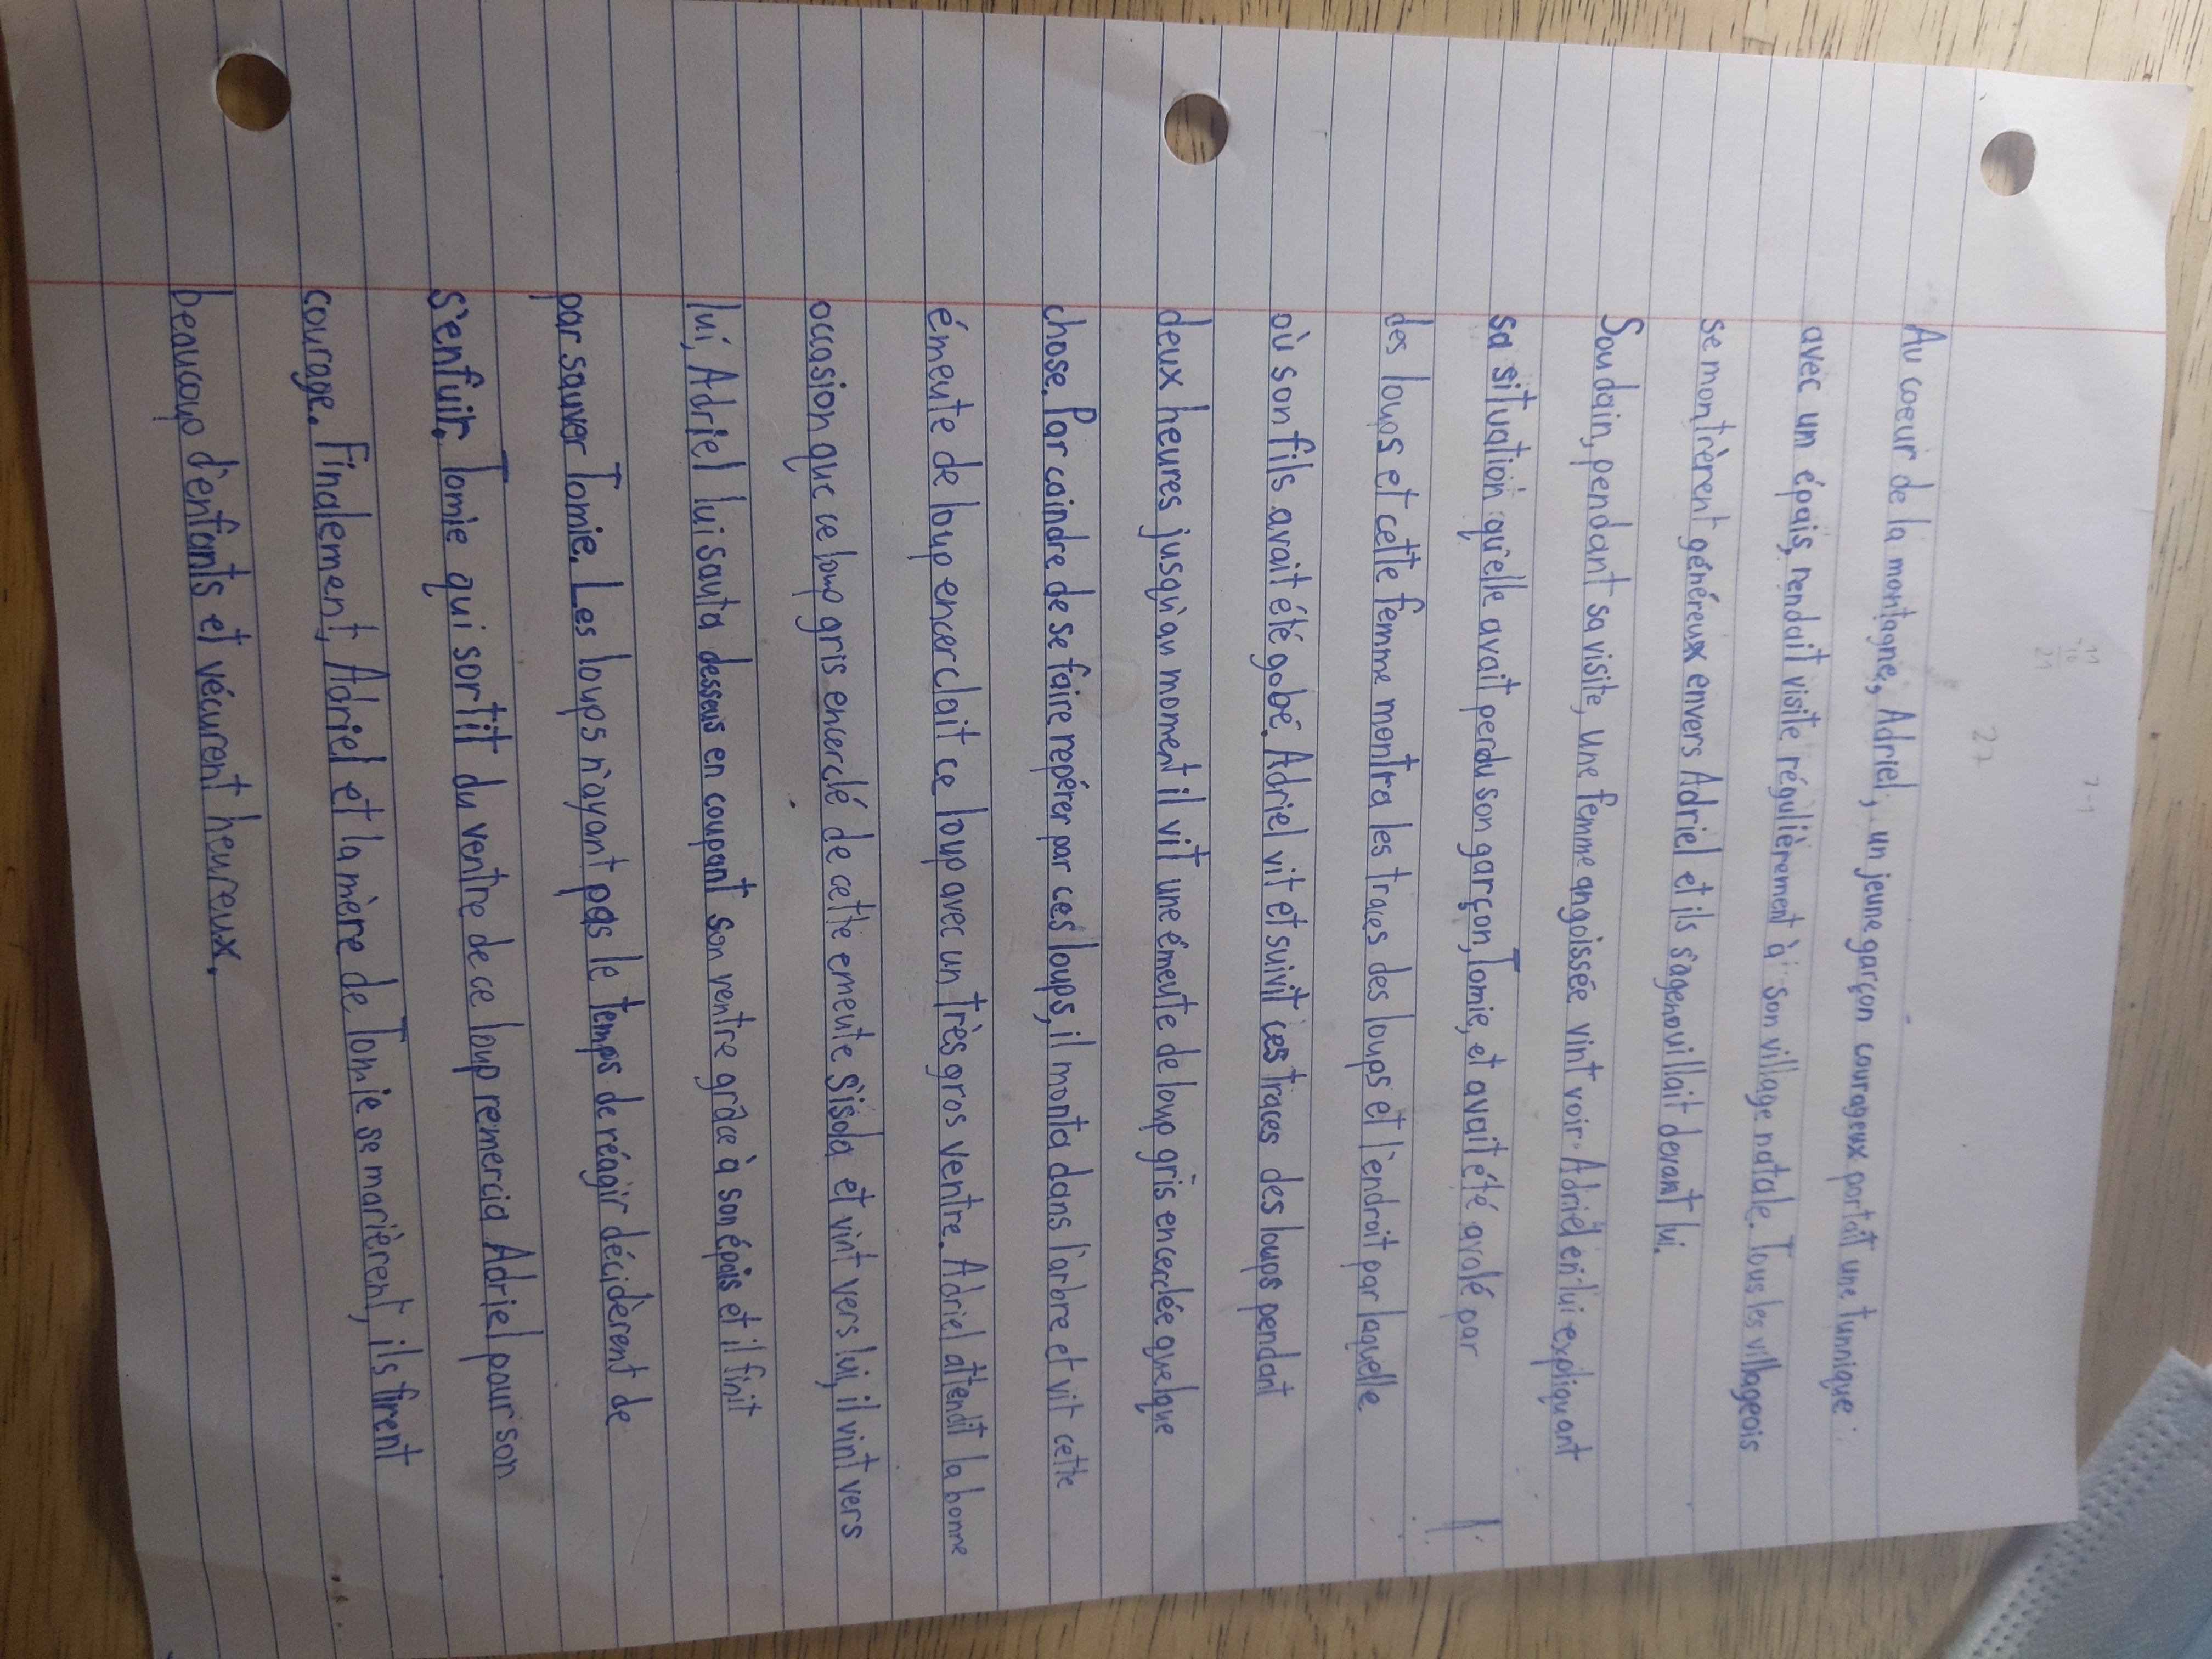 Au coeur de la montagne, Adriel, un jeune garçon courageux portait une tunnique
avec un épais, rendait visite régulièrement à son village natale. Tous les villageois
se montrèrent généreux envers Adriel et ils s'agenouillait devant lui.
Soudain, pendant sa visite, une femme angoissée vint voir Adriel en lui expliquant
sa situation qu'elle avait perdu son garçon, Tomie, et avait été avalé par
des loups et cette femme montra les traces des loups et l'endroit par laquelle
où son fils avait été gobé. Adriel vit et suivit ces traces des loups pendant
deux heures jusqu'au moment il vit une émeute de loup gris encerclée quelque
chose. Par caindre de se faire repérer par ces loups, il monta dans l'arbre et vit cette
émeute de loup encerclait ce loup avec un très gros ventre. Adriel attendit la bonne
occasion que ce loup gris encerclé de cette emeute s'isola et vint vers lui, il vint vers
lui, Adriel lui sauta dessus en coupant son ventre grâce à son épais et il finit
par sauver Tomie. Les loups n'ayant pas le temps de réagir décidèrent de
s'enfuir. Tomie qui sortit du ventre de ce loup remercia Adriel pour son
courage. Finalement, Adriel et la mère de Tomie se marièrent, ils firent
beaucoup d'enfants et vécurent heureux.